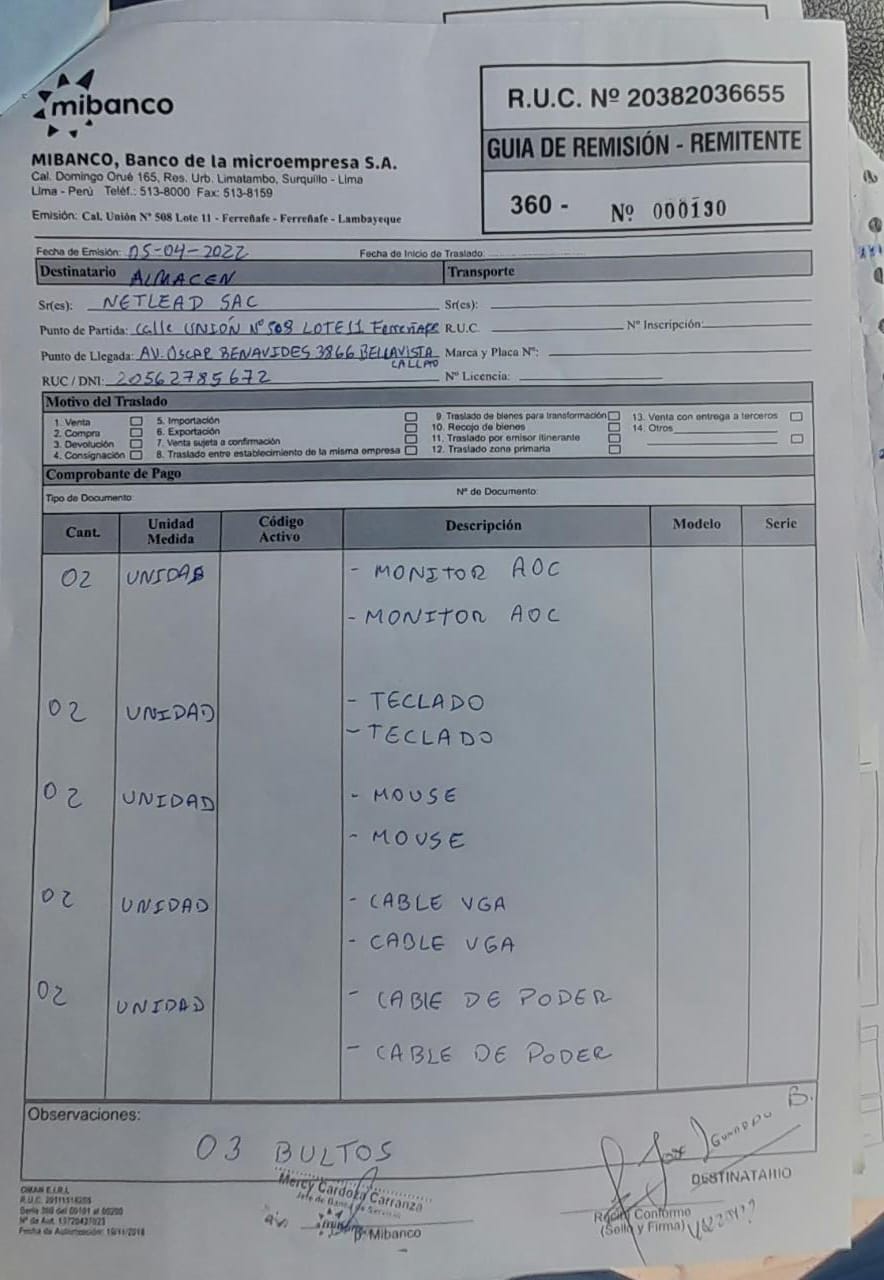 mibanco
R.U.C. Nº 20382036655
GUIA DE REMISIÓN - REMITENTE
360 - Nº 000130
MIBANCO, Banco de la microempresa S.A.
Cal. Domingo Orué 165, Res. Urb. Limatambo, Surquillo - Lima
Lima - Perú Teléf.: 513-8000 Fax: 513-8159
Emisión: Cal. Unión Nº 508 Lote 11 - Ferreñafe - Ferreñafe - Lambayeque
Fecha de Emisión: 05-04-2022 Fecha de Inicio de Traslado:
Destinatario ALMACEN Transporte
Sr(es): NETLEAD SAC Sr(es):
Punto de Partida: Calle UNIÓN Nº 508 LOTE11 Ferreñafe R.U.C. Nº Inscripción:
Punto de Llegada: AV. OSCAR BENAVIDES 3866 BELLAVISTA Marca y Placa Nº:
CALLAO
RUC / DNI: 20562785672 Nº Licencia:
Motivo del Traslado
1. Venta 5. Importación 9. Traslado de bienes para transformación 13. Venta con entrega a terceros
2. Compra 6. Exportación 10. Recojo de bienes 14. Otros
3. Devolución 7. Venta sujeta a confirmación 11. Traslado por emisor itinerante
4. Consignación 8. Traslado entre establecimiento de la misma empresa 12. Traslado zona primaria
Comprobante de Pago
Tipo de Documento: Nº de Documento:
Cant. Unidad Medida Código Activo Descripción Modelo Serie
02 UNIDAD - MONITOR AOC
- MONITOR AOC
02 UNIDAD - TECLADO
- TECLADO
02 UNIDAD - MOUSE
- MOUSE
02 UNIDAD - CABLE VGA
- CABLE VGA
02 UNIDAD - CABLE DE PODER
- CABLE DE PODER
Observaciones:
03 BULTOS
Mercy Cardoza Carranza
Jefe de Banca de Servicio
P. Mibanco
DESTINATARIO
Recibí Conforme
(Sello y Firma)
OMAN E.I.R.L
Serie 360 del 00101 al 00200
Nº de Aut. 13720437023
Fecha de Autorización: 19/11/2018